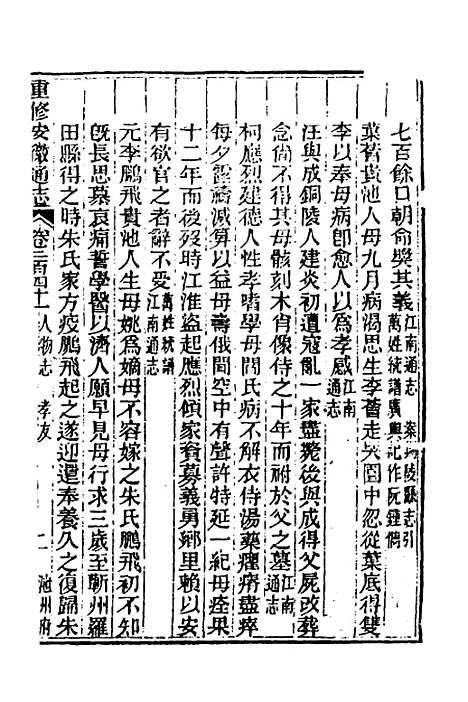 七百餘口朝命獎其義江南通志 案銅陵縣志引
萬姓統譜廣輿記作阮鍾儁
葉蒼貴池人母九月病渴思生李蒼走哭園中忽從葉底得雙
李以奉母病卽愈人以爲孝感江南通志
汪與成銅陵人建炎初遭寇亂一家盡斃後與成得父屍改葬
念尙不得其母骸刻木肖像侍之十年而祔於父之墓江南通志
柯應烈建德人性孝嗜學母閻氏病不解衣侍湯藥瘞瘠盡瘁
每夕露禱減算以益母壽俄聞空中有聲許特延一紀母痊果
十二年而後歿時江淮盜起應烈傾家資募義勇鄉里賴以安
有欲官之者辭不受萬姓統譜江南通志
元李鵬飛貴池人生母姚爲嫡母不容嫁之朱氏鵬飛初不知
旣長思慕哀痛誓學醫以濟人願早見母行求三歲至蘄州羅
田縣得之時朱氏家方疫鵬飛起之遂迎還奉養久之復歸朱
重修安徽通志 卷二百四十一 人物志 孝友 二 池州府